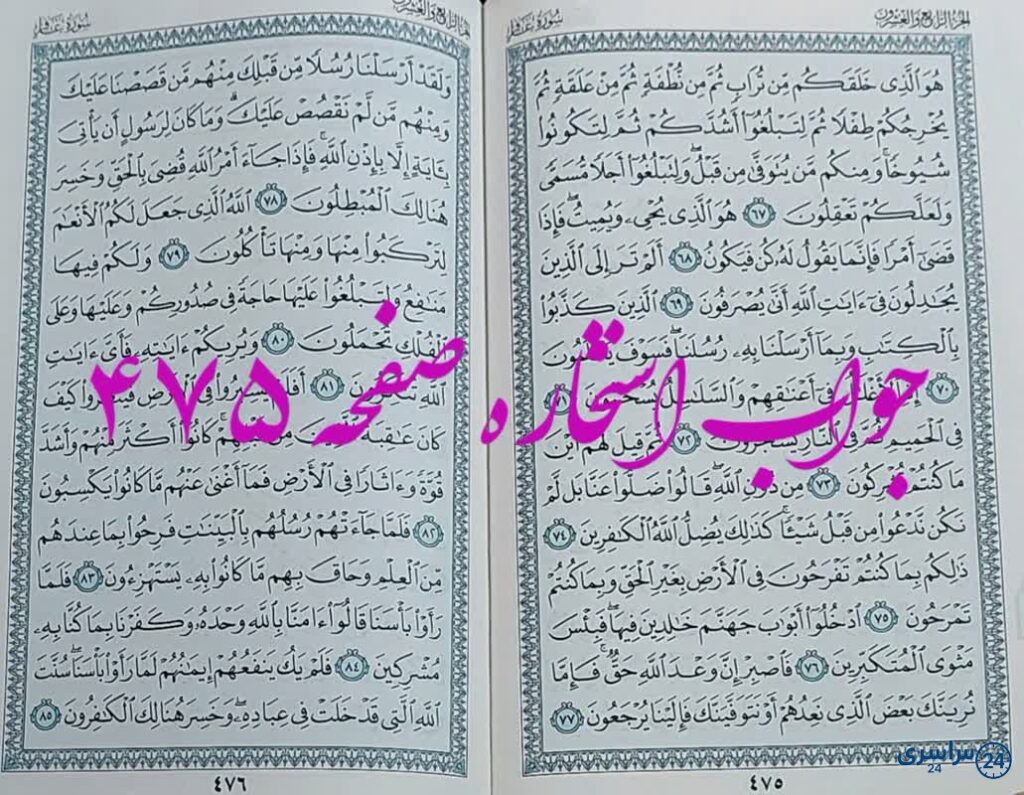 الجزء الرابع والعشرون
سورة غافر
هُوَ الَّذِى خَلَقَكُم مِّن تُرَابٍ ثُمَّ مِن نُّطْفَةٍ ثُمَّ مِنْ عَلَقَةٍ ثُمَّ
يُخْرِجُكُمْ طِفْلًا ثُمَّ لِتَبْلُغُوٓا۟ أَشُدَّكُمْ ثُمَّ لِتَكُونُوا۟
شُيُوخًا وَمِنكُم مَّن يُتَوَفَّىٰ مِن قَبْلُ وَلِتَبْلُغُوٓا۟ أَجَلًا مُّسَمًّى
وَلَعَلَّكُمْ تَعْقِلُونَ ٦٧ هُوَ الَّذِى يُحْىِۦ وَيُمِيتُ فَإِذَا
قَضَىٰٓ أَمْرًا فَإِنَّمَا يَقُولُ لَهُۥ كُن فَيَكُونُ ٦٨ أَلَمْ تَرَ إِلَى الَّذِينَ
يُجَٰدِلُونَ فِىٓ ءَايَٰتِ اللَّهِ أَنَّىٰ يُصْرَفُونَ ٦٩ الَّذِينَ كَذَّبُوا۟
بِالْكِتَٰبِ وَبِمَآ أَرْسَلْنَا بِهِۦ رُسُلَنَا فَسَوْفَ يَعْلَمُونَ
٧٠ إِذِ الْأَغْلَٰلُ فِىٓ أَعْنَٰقِهِمْ وَالسَّلَٰسِلُ يُسْحَبُونَ ٧١
فِى الْحَمِيمِ ثُمَّ فِى النَّارِ يُسْجَرُونَ ٧٢ ثُمَّ قِيلَ لَهُمْ أَيْنَ
مَا كُنتُمْ تُشْرِكُونَ ٧٣ مِن دُونِ اللَّهِ قَالُوا۟ ضَلُّوا۟ عَنَّا بَل لَّمْ
نَكُن نَّدْعُوا۟ مِن قَبْلُ شَيْـًٔا كَذَٰلِكَ يُضِلُّ اللَّهُ الْكَٰفِرِينَ ٧٤
ذَٰلِكُم بِمَا كُنتُمْ تَفْرَحُونَ فِى الْأَرْضِ بِغَيْرِ الْحَقِّ وَبِمَا كُنتُمْ
تَمْرَحُونَ ٧٥ ادْخُلُوٓا۟ أَبْوَٰبَ جَهَنَّمَ خَٰلِدِينَ فِيهَا فَبِئْسَ
مَثْوَى الْمُتَكَبِّرِينَ ٧٦ فَاصْبِرْ إِنَّ وَعْدَ اللَّهِ حَقٌّ فَإِمَّا
نُرِيَنَّكَ بَعْضَ الَّذِى نَعِدُهُمْ أَوْ نَتَوَفَّيَنَّكَ فَإِلَيْنَا يُرْجَعُونَ ٧٧
٤٧٥
الجزء الرابع والعشرون
سورة غافر
وَلَقَدْ أَرْسَلْنَا رُسُلًا مِّن قَبْلِكَ مِنْهُم مَّن قَصَصْنَا عَلَيْكَ
وَمِنْهُم مَّن لَّمْ نَقْصُصْ عَلَيْكَ وَمَا كَانَ لِرَسُولٍ أَن يَأْتِىَ
بِـَٔايَةٍ إِلَّا بِإِذْنِ اللَّهِ فَإِذَا جَآءَ أَمْرُ اللَّهِ قُضِىَ بِالْحَقِّ وَخَسِرَ
هُنَالِكَ الْمُبْطِلُونَ ٧٨ اللَّهُ الَّذِى جَعَلَ لَكُمُ الْأَنْعَٰمَ
لِتَرْكَبُوا۟ مِنْهَا وَمِنْهَا تَأْكُلُونَ ٧٩ وَلَكُمْ فِيهَا
مَنَٰفِعُ وَلِتَبْلُغُوا۟ عَلَيْهَا حَاجَةً فِى صُدُورِكُمْ وَعَلَيْهَا وَعَلَى
الْفُلْكِ تُحْمَلُونَ ٨٠ وَيُرِيكُمْ ءَايَٰتِهِۦ فَأَىَّ ءَايَٰتِ
اللَّهِ تُنكِرُونَ ٨١ أَفَلَمْ يَسِيرُوا۟ فِى الْأَرْضِ فَيَنظُرُوا۟ كَيْفَ
كَانَ عَٰقِبَةُ الَّذِينَ مِن قَبْلِهِمْ كَانُوٓا۟ أَكْثَرَ مِنْهُمْ وَأَشَدَّ
قُوَّةً وَءَاثَارًا فِى الْأَرْضِ فَمَآ أَغْنَىٰ عَنْهُم مَّا كَانُوا۟ يَكْسِبُونَ
٨٢ فَلَمَّا جَآءَتْهُمْ رُسُلُهُم بِالْبَيِّنَٰتِ فَرِحُوا۟ بِمَا عِندَهُم
مِّنَ الْعِلْمِ وَحَاقَ بِهِم مَّا كَانُوا۟ بِهِۦ يَسْتَهْزِءُونَ ٨٣ فَلَمَّا
رَأَوْا۟ بَأْسَنَا قَالُوٓا۟ ءَامَنَّا بِاللَّهِ وَحْدَهُۥ وَكَفَرْنَا بِمَا كُنَّا بِهِۦ
مُشْرِكِينَ ٨٤ فَلَمْ يَكُ يَنفَعُهُمْ إِيمَٰنُهُمْ لَمَّا رَأَوْا۟ بَأْسَنَا سُنَّتَ
اللَّهِ الَّتِى قَدْ خَلَتْ فِى عِبَادِهِۦ وَخَسِرَ هُنَالِكَ الْكَٰفِرُونَ ٨٥
٤٧٦
جواب استخاره صفحه ۴۷۵
سراسری 24
24